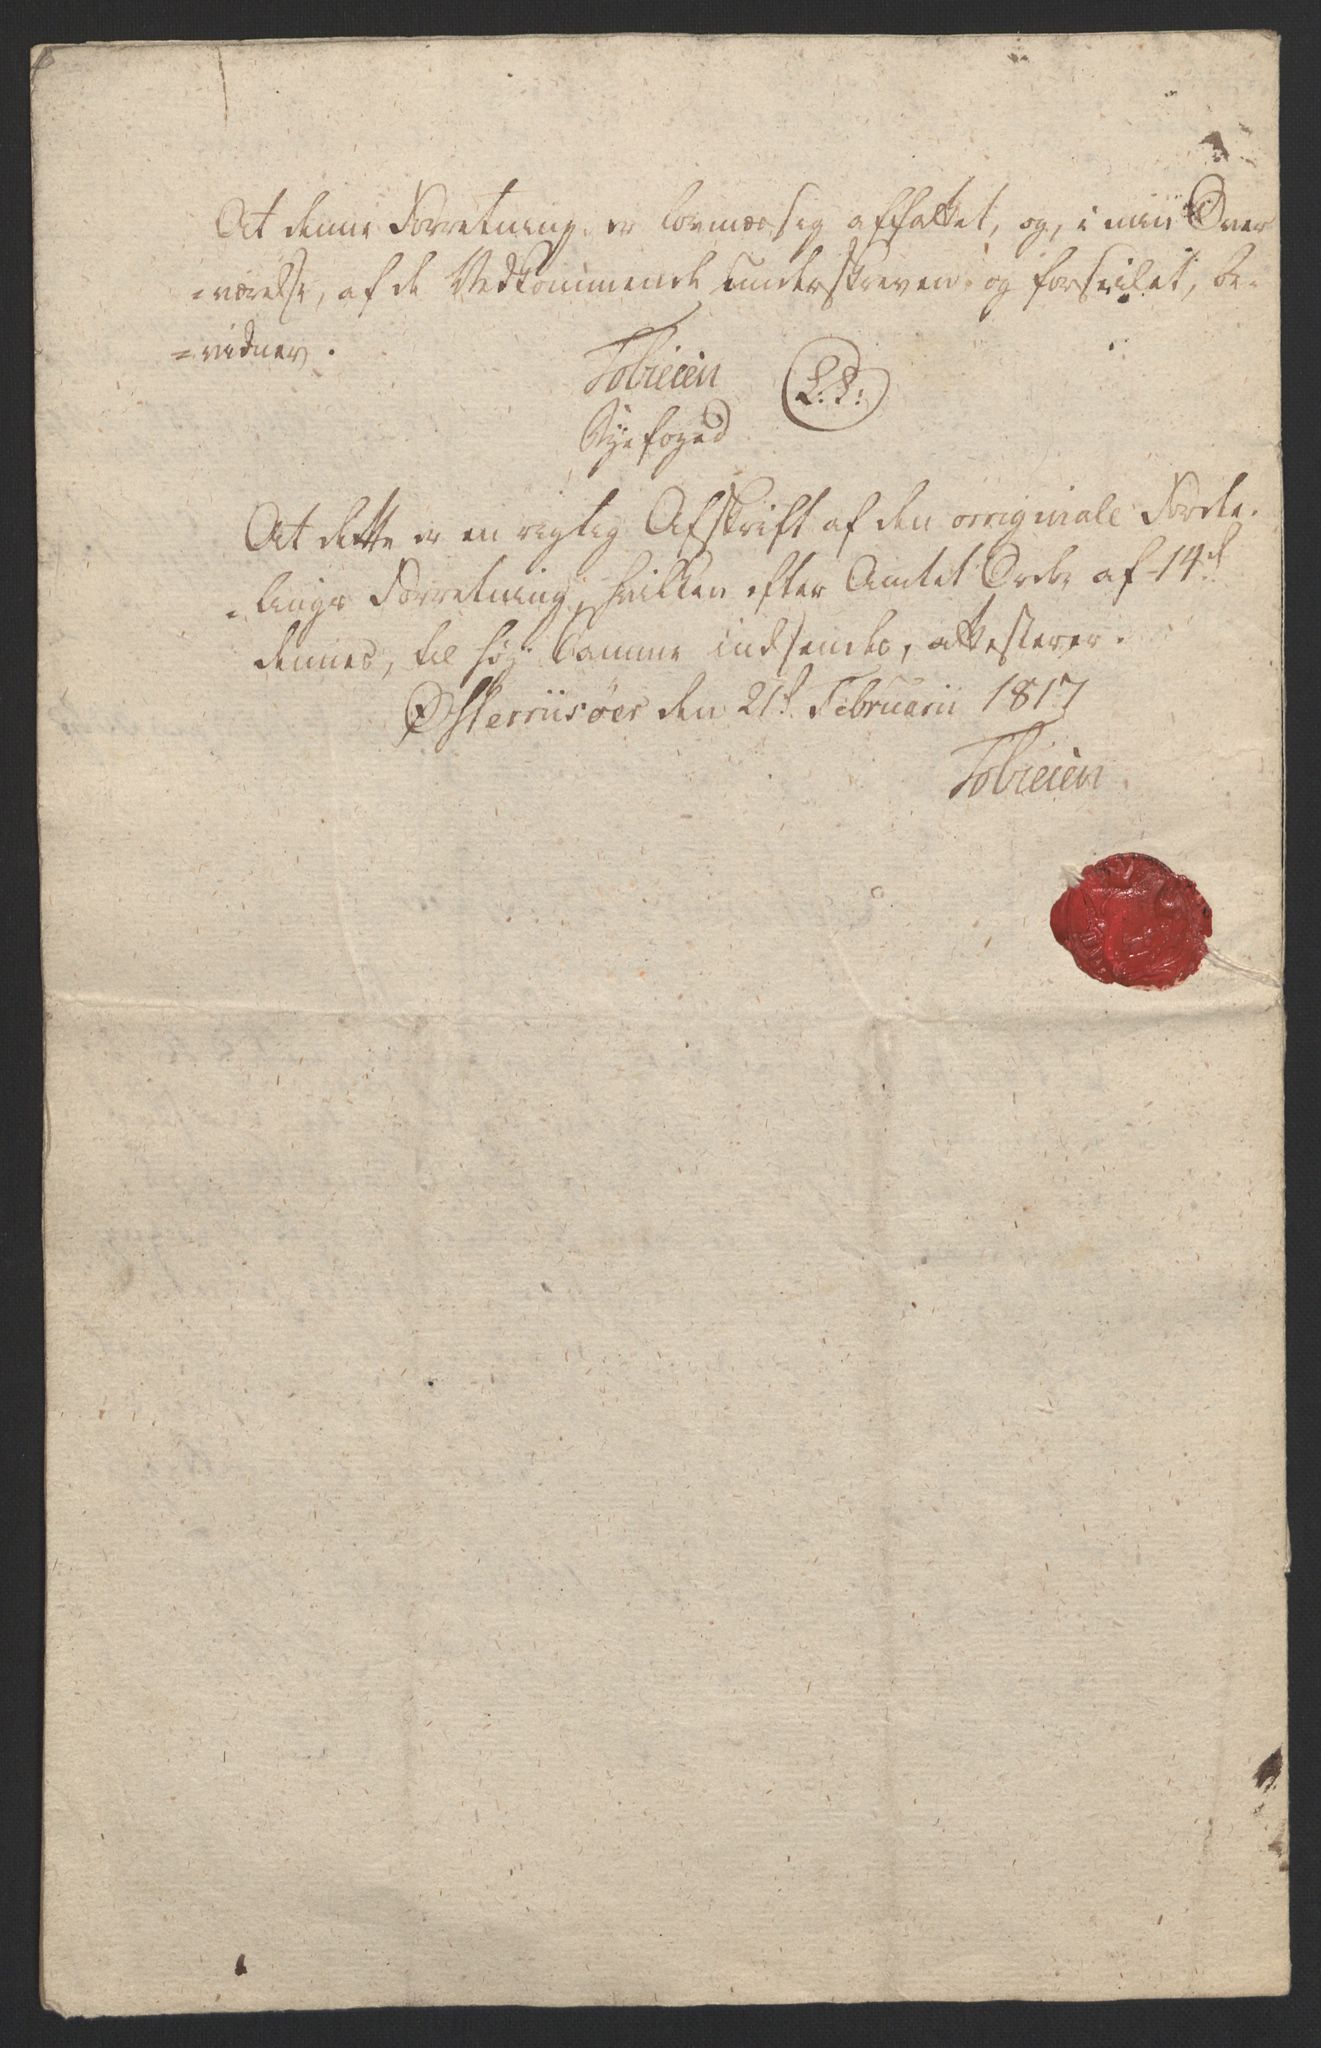 At denne Forretning er lovmæssig affattet, og, i min Over
=værelse, af de Vedkommende underskreven og forseilet, be-
=vidner.
Tobiesen (L.S.)
Byefoged
At dette er en rigtig Afskrift af den originale Forde-
=lings Forretning, hvilken efter Amtets Ordre af 14d
dennes, til høj samme indsendes, attesterer.
Østerriisøer den 21d Februarii 1817
Tobiesen